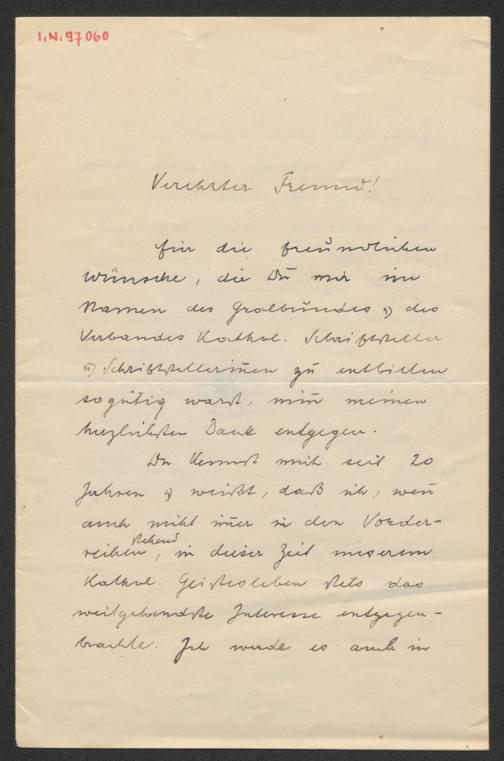 I.N. 97060
Verehrter Freund!
Für die freundlichen
Wünsche, die Du mir im
Namen des Gralbundes u) des
Verbandes Kathol. Schriftsteller
u) Schriftstellerinen zu entbieten
so gütig warst, nim meinen
herzlichsten Dank entgegen.
Du kennst mich seit 20
Jahren u) weißt, daß ich, wen
auch nicht imer in den Vorder-
stehend
reihen, in dieser Zeit unserem
Kathol. Geistesleben stets das
weitgehendste Interesse entgegen-
brachte. Ich werde es auch in